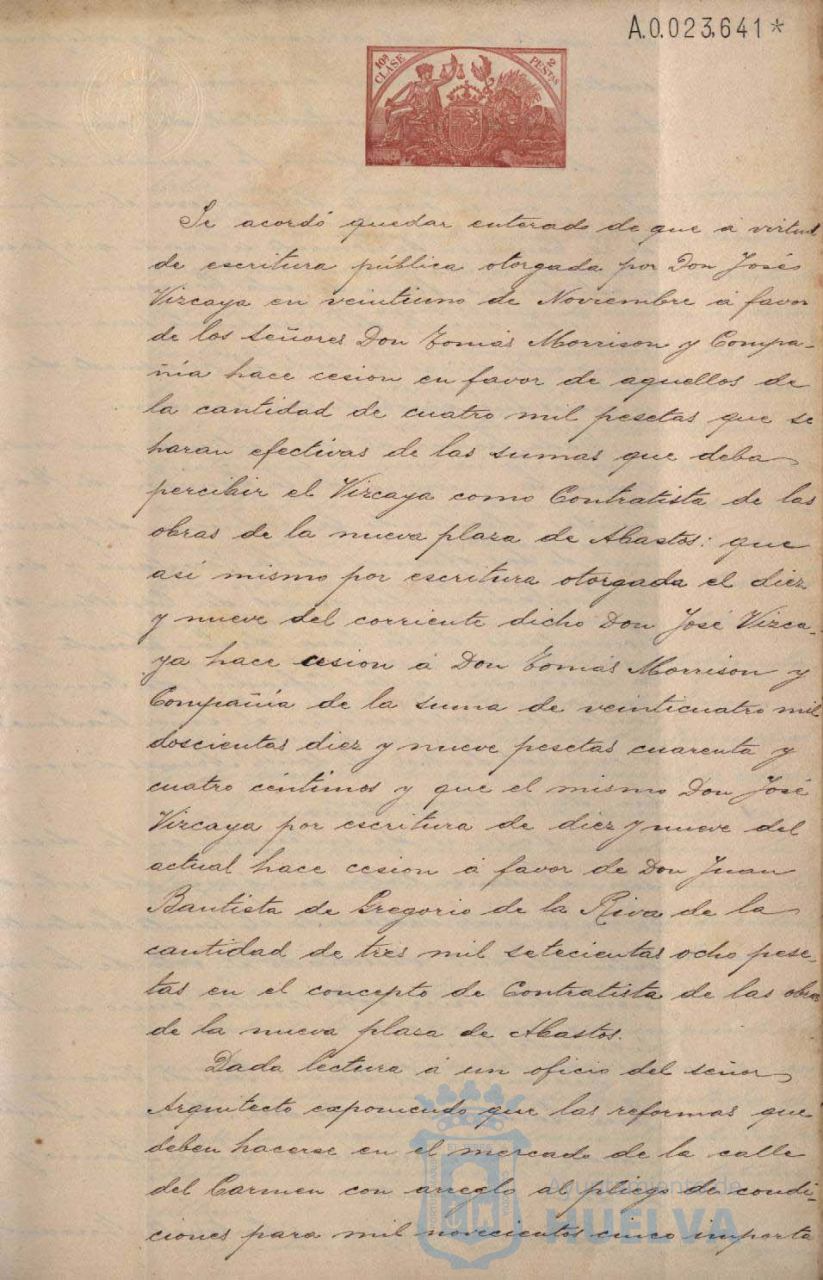 A.0.023,641*
10ª CLASE
2 PESTAS
Se acordó quedar enterado de que á virtud
de escritura pública otorgada por Don José
Vizcaya en veintiuno de Noviembre á favor
de los señores Don Tomás Morrison y Compa-
ñía hace cesion en favor de aquellos de
la cantidad de cuatro mil pesetas que se
haran efectivas de las sumas que deba
percibir el Vizcaya como Contratista de las
obras de la nueva plaza de Abastos: que
asi mismo por escritura otorgada el diez
y nueve del corriente dicho Don José Vizca-
ya hace cesion á Don Tomás Morrison y
Compañía de la suma de veinticuatro mil
doscientas diez y nueve pesetas cuarenta y
cuatro céntimos y que el mismo Don José
Vizcaya por escritura de diez y nueve del
actual hace cesion á favor de Don Juan
Bautista de Gregorio de la Riva de la
cantidad de tres mil setecientas ocho pese-
tas en el concepto de Contratista de las obras
de la nueva plaza de Abastos.
Dada lectura á un oficio del señor
Arquitecto exponiendo que las reformas que
deben hacerse en el mercado de la calle
del Carmen con arreglo al pliego de condi-
ciones para mil novecientos cinco importa
Ayuntamiento de
HUELVA